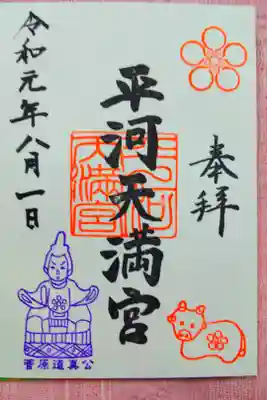 奉拝
平河天満宮
平河天満宮
令和元年八月一日
菅原道真公